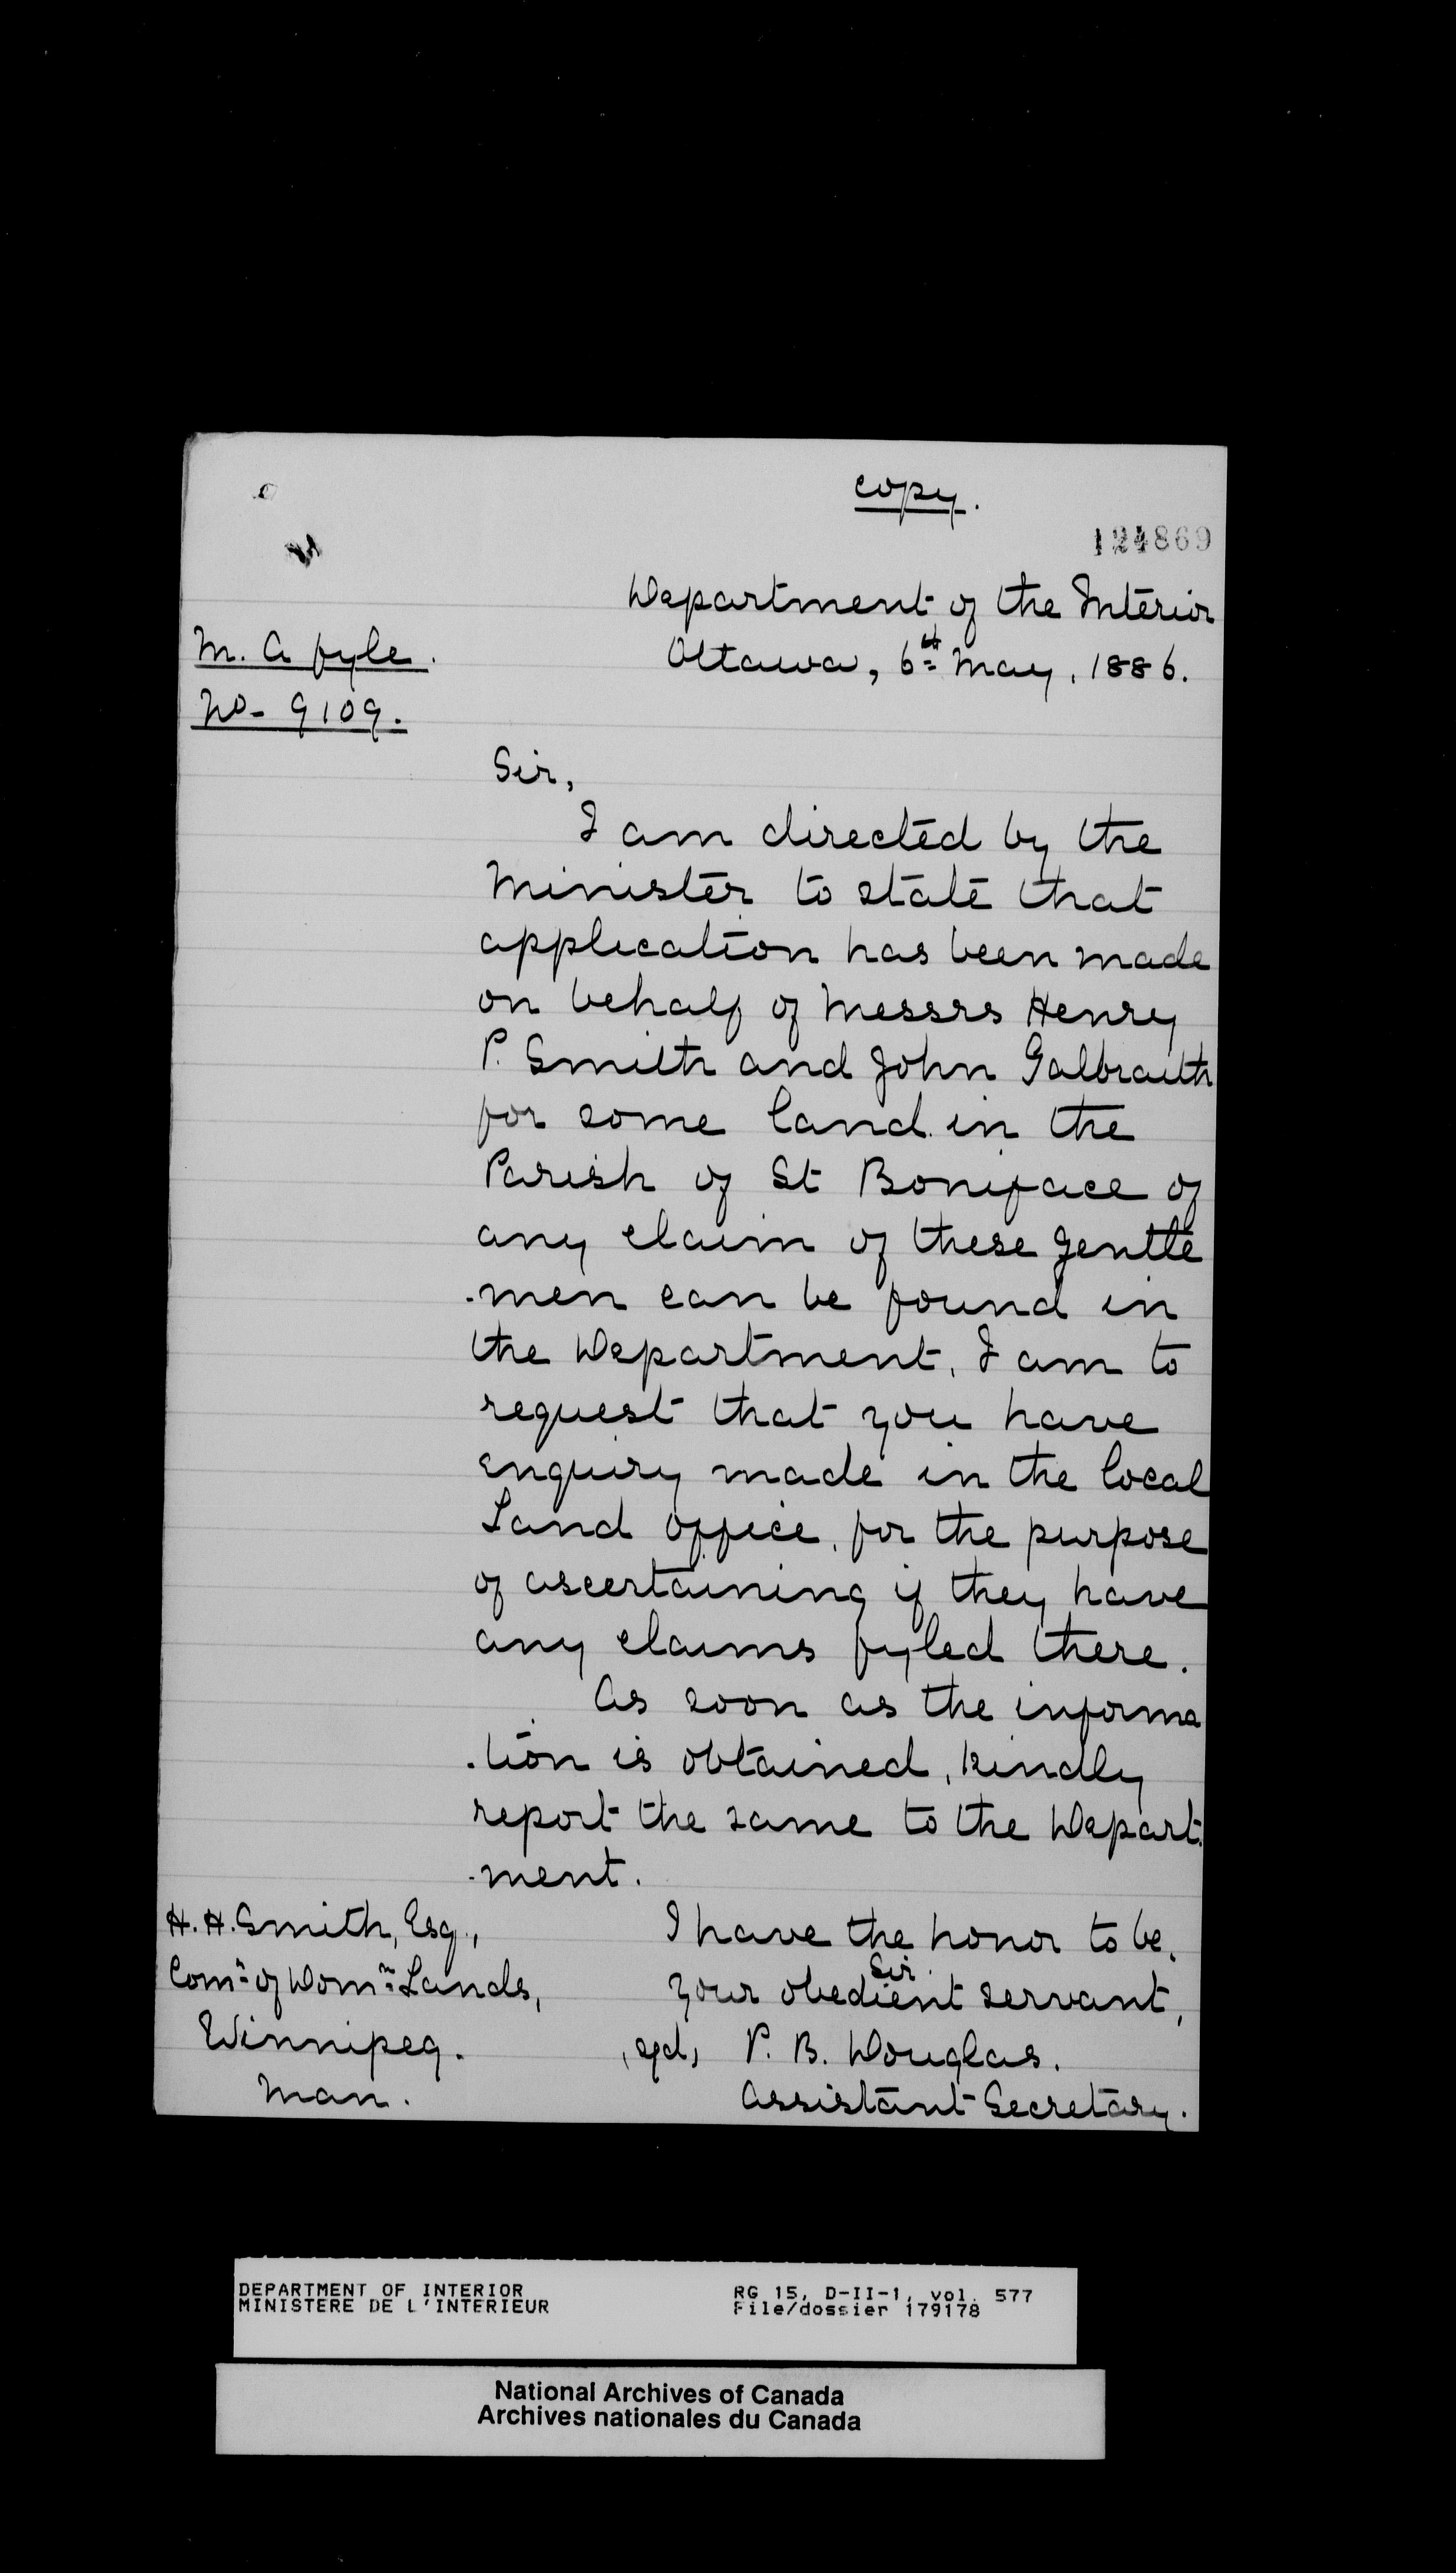 copy.
124869
Department of the Interior
M. A fyle.
Ottawa, 6th May, 1886.
No- 9109.
Sir,
I am directed by the
Minister to state that
application has been made
on behalf of Messrs Henry
P. Smith and John Galbraith
for some land in the
Parish of St Boniface of
any claim of these gentle
-men can be found in
the Department, I am to
request that you have
enquiry made in the local
Land office, for the purpose
of ascertaining if they have
any claims fyled there.
As soon as the informa
-tion is obtained, kindly
report the same to the Depart-
-ment.
H. H. Smith, Esq.,
Comr of Domn Lands,
Winnipeg.
Man.
I have the honor to be,
Sir.
Your obedient servant,
(sgd) P. B. Douglas.
Assistant Secretary.
DEPARTMENT OF INTERIOR
MINISTERE DE L'INTERIEUR
RG 15, D-II-1, vol. 577
File/dossier 179178
National Archives of Canada
Archives nationales du Canada